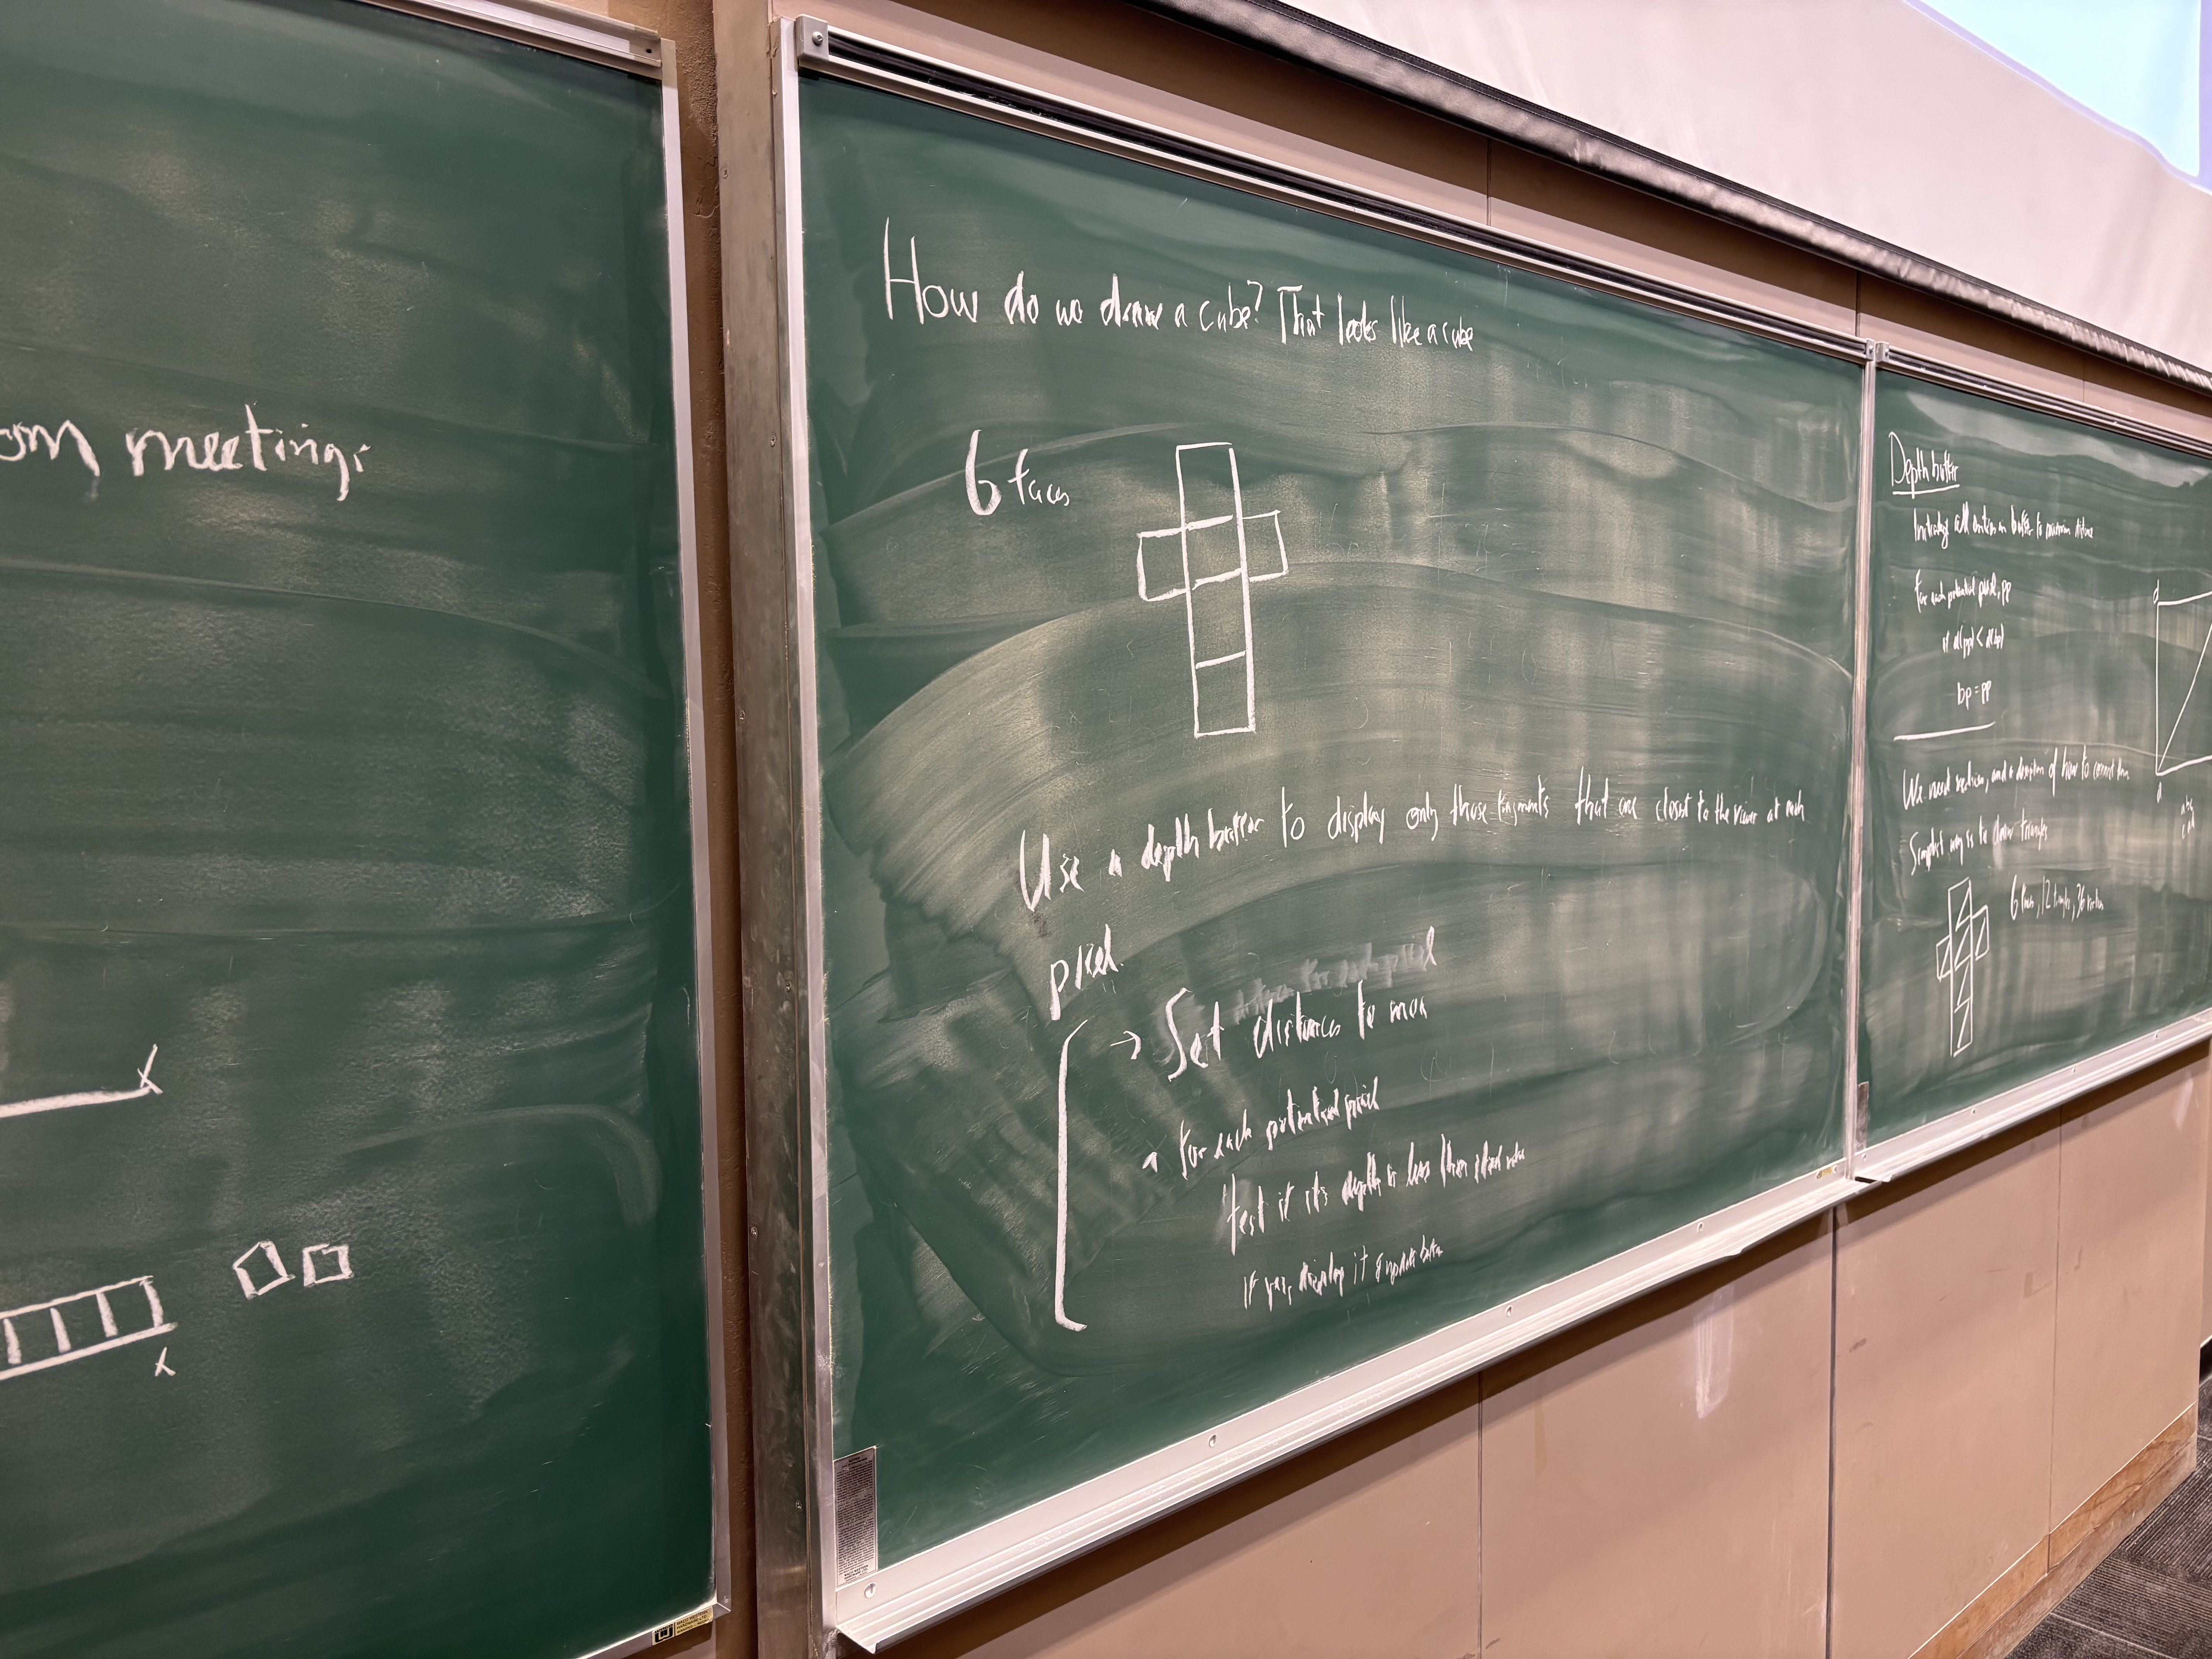 om meetings
x
x
How do we draw a cube? That looks like a cube
6 faces
Use a depth buffer to display only those fragments that are closest to the viewer at each
pixel.
→ Set distances to max
for each potential pixel
test if its depth is less than stored value
if yes, display it & update buffer
Depth buffer
all entries in buffer to maximum distance
for each potential pixel, pp
if d(pp) < d(bp)
bp = pp
We need vertices, and a description of how to connect them
Simplest way is to draw triangles
6 faces, 12 triangles, 36 vertices
d